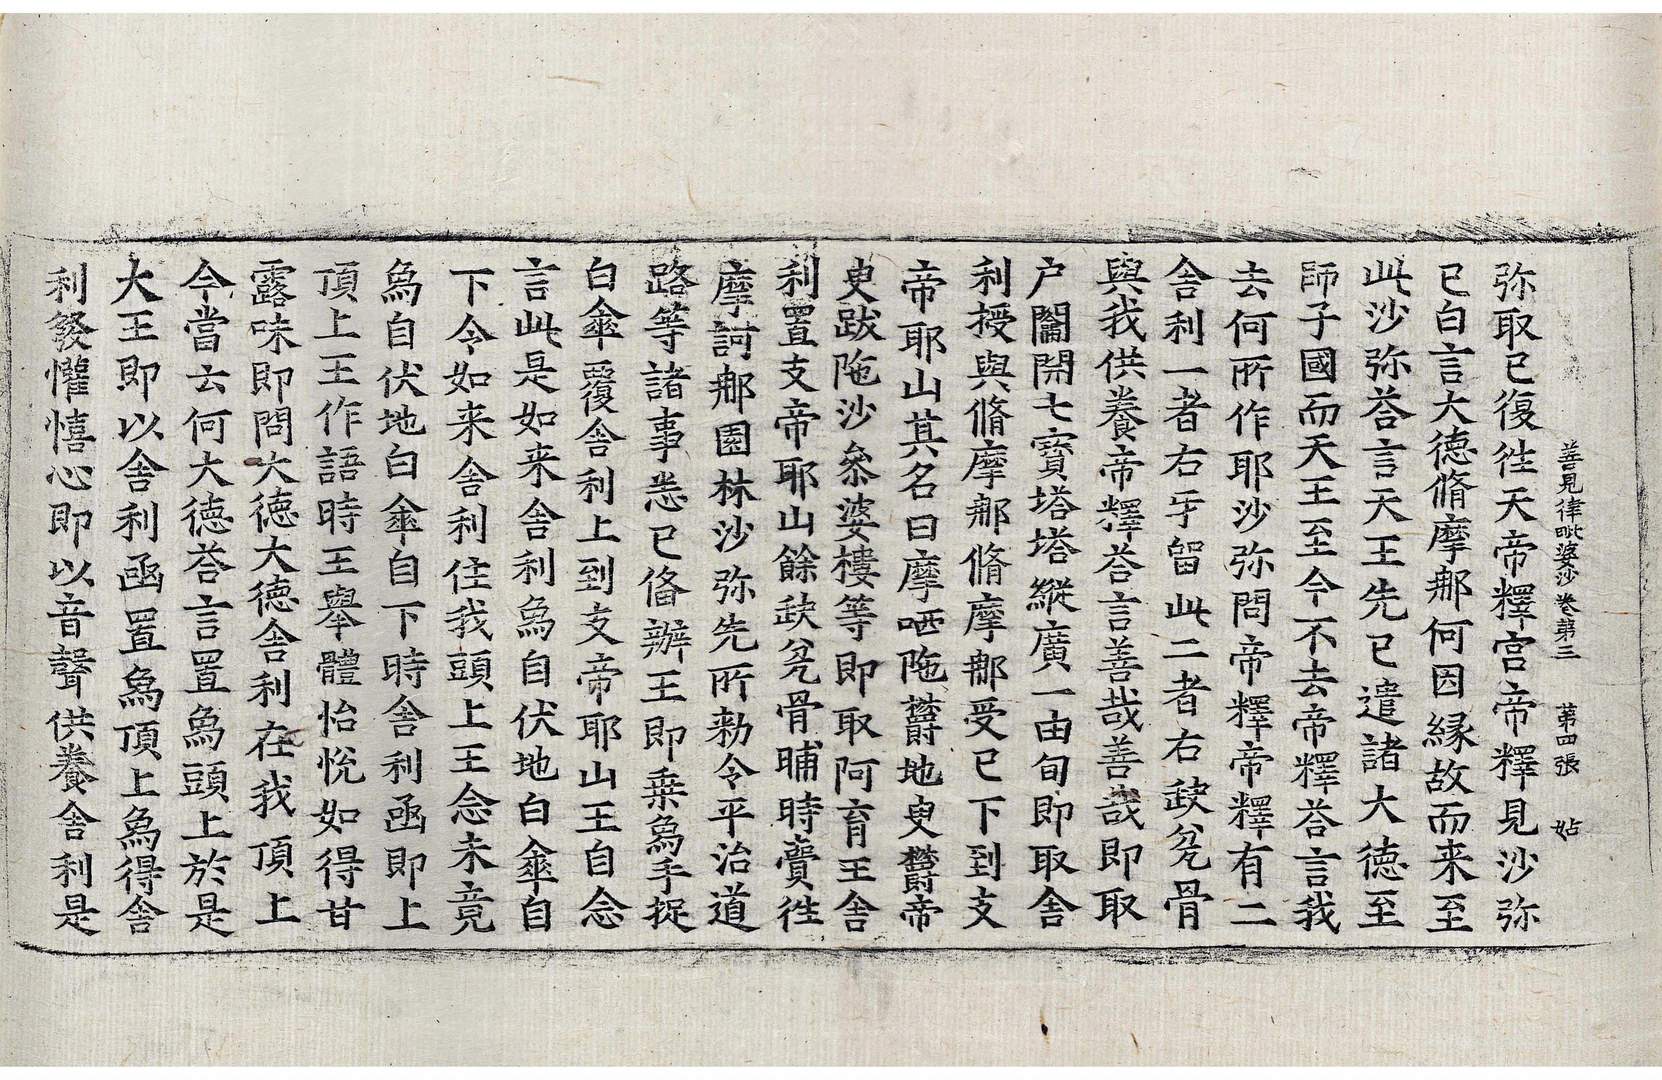 善見律毗婆沙卷第三 第四張 姑
弥取已復往天帝釋宮帝釋見沙弥
已白言大德脩摩那何因縁故而来至
此沙弥荅言天王先已遣諸大德至
師子國而天王至今不去帝釋荅言我
去何所作耶沙弥問帝釋帝釋有二
舍利一者右牙留此二者右𡙇盆骨
與我供養帝釋荅言善哉善哉即取
户鑰開七寶塔塔縱廣一由旬即取舍
利授與脩摩那脩摩那受已下到支
帝耶山其名曰摩哂陁欝地臾欝帝
臾跋陁沙叅婆樓等即取阿育王舍
利置支帝耶山餘𡙇盆骨晡時賷往
摩訶那園林沙弥先所勑令平治道
路等諸事悉已俻辦王即乗爲手捉
白傘覆舍利上到支帝耶山王自念
言此是如来舍利爲自伏地白傘自
下令如来舍利住我頭上王念未竟
爲自伏地白傘自下時舍利函即上
頂上王作語時王舉體怡悅如得甘
露味即問大德大德舍利在我頂上
今當云何大德荅言置爲頭上於是
大王即以舍利函置爲頂上爲得舍
利發懽憘心即以音聲供養舍利是